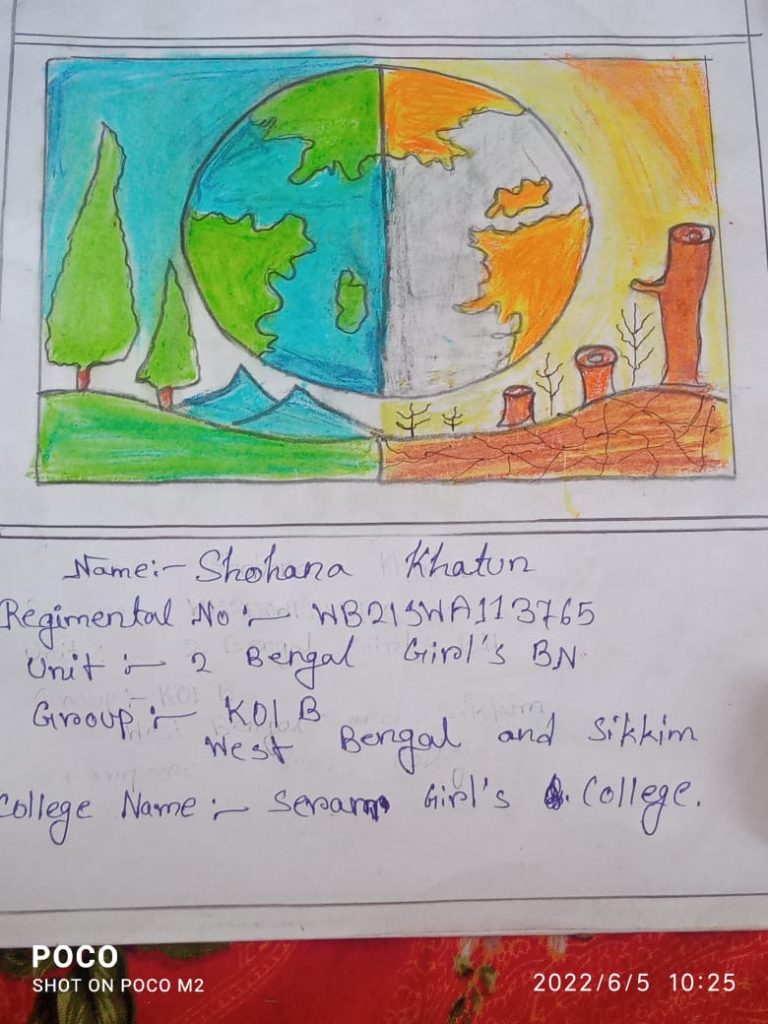 Name:- Shohana Khatun
Regimental No :- WB21SWA113765
Unit :- 2 Bengal Girl's BN
Group :- KOl B
West Bengal and Sikkim
College Name :- Seram Girl's College.
POCO
SHOT ON POCO M2
2022/6/5 10:25